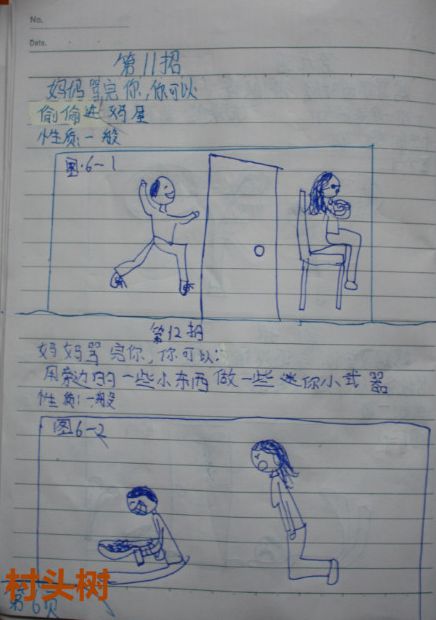 No.
Date.
第11招
妈妈骂完你,你可以
偷偷进妈屋
性质:一般
图·6-1
第12招
妈妈骂完你,你可以:
用旁边的一些小东西做一些迷你小武器
性质:一般
图6-2
村头树
第6页